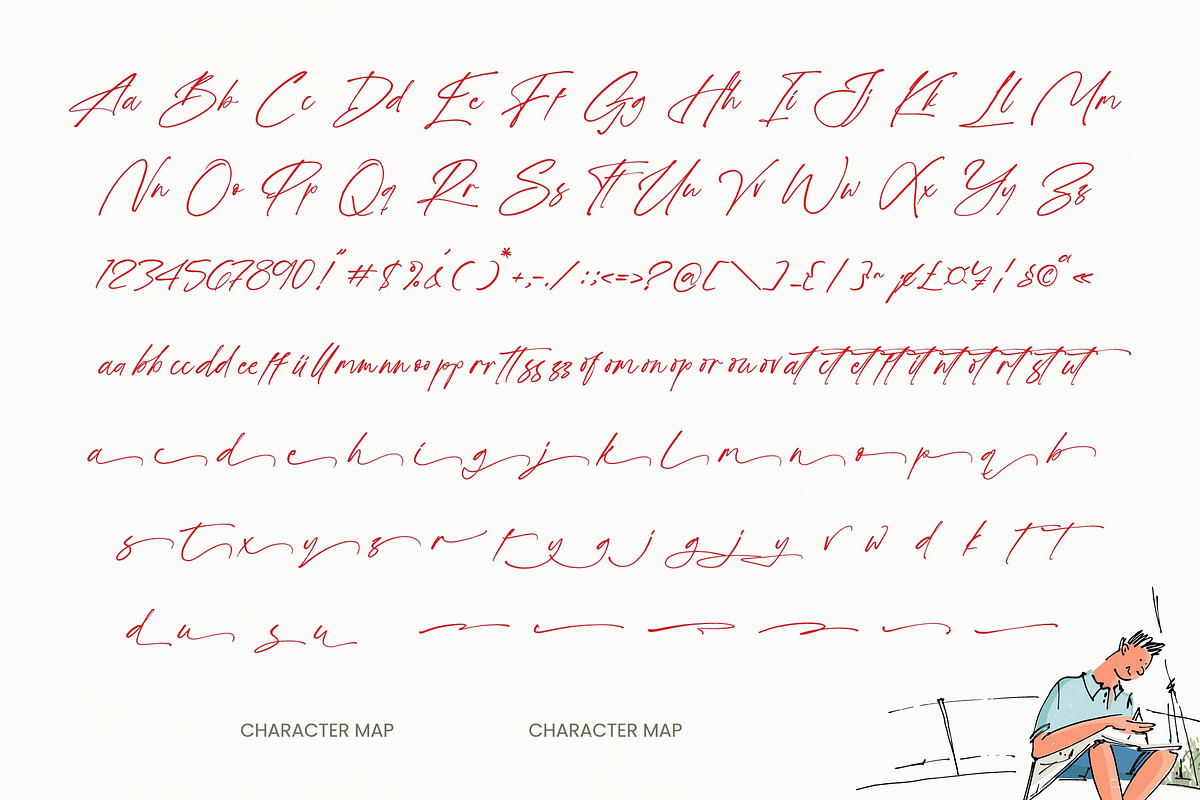 Aa Bb Cc Dd Ee Ff Gg Hh Ii Jj Kk Ll Mm
Nn Oo Pp Qq Rr Ss Tt Uu Vv Ww Xx Yy Zz
1234567890!" #$%&'()*+,-./:;<=>?@[\]_{|}~¢£¤¥¦§©ª«
aa bb cc dd ee ff ii ll mm nn oo pp rr tt ss zz of om on op or ou ov at ct et ft it nt ot rt st ut
a c d e h i g j k l m n o p q b
s t x y z r t y g j g j y r w d k t t
d u s u
CHARACTER MAP CHARACTER MAP